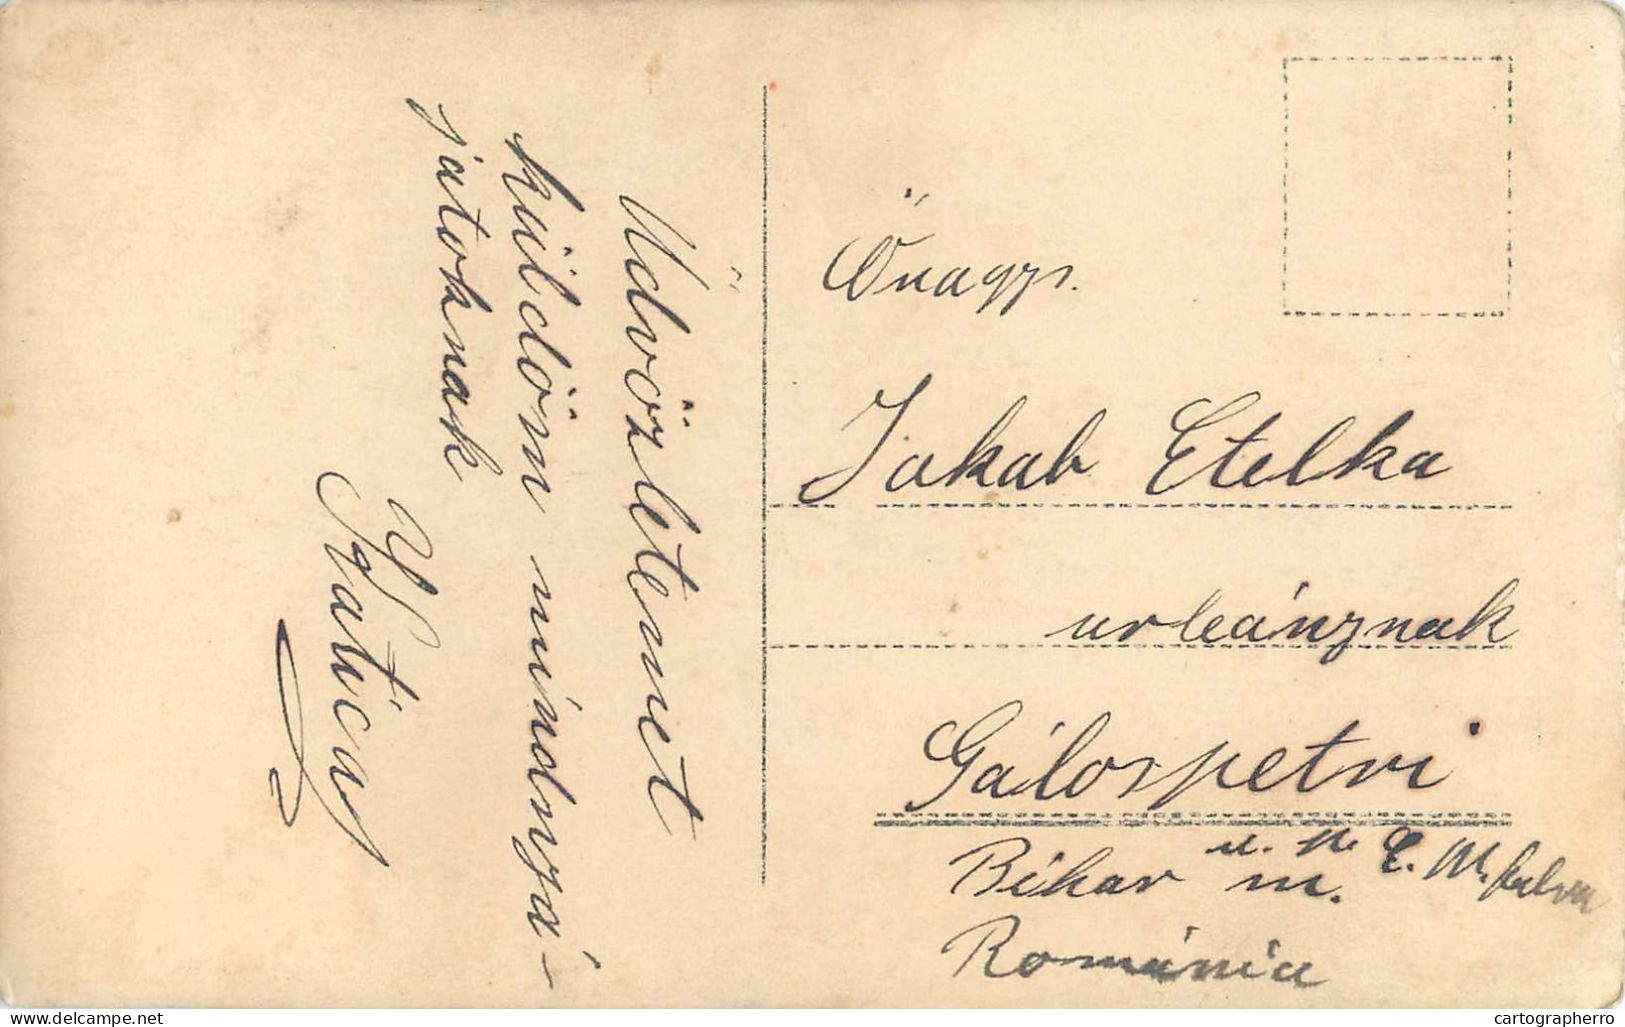 Üdvözletemet
küldöm mindnyá-
jatoknak
Katica
Önagys.
Jakab Etelka
urleánynak
Gálospetri
u. p. É. M. falva
Bihar m.
Románia
www.delcampe.net
cartographerro